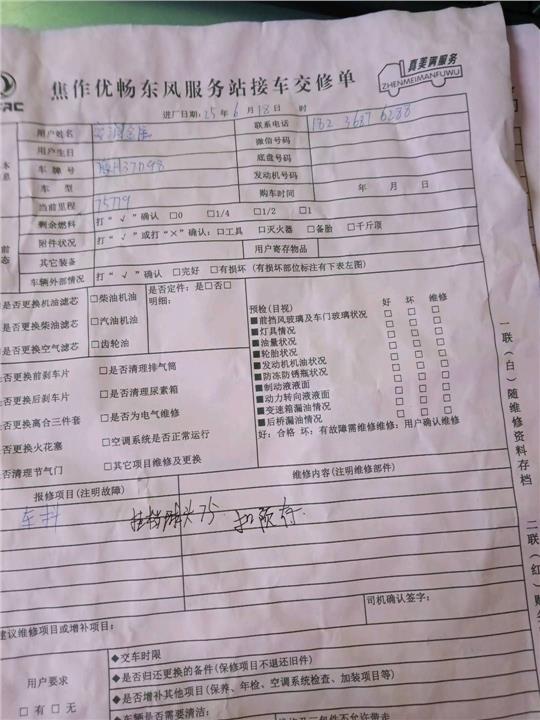 焦作优畅东风服务站接车交修单
真要满服务
ZHENMEIMANFUWU
进厂日期: 25 年 6 月 18 日 时
用户姓名
联系电话
用户生日
微信号码
车牌号
底盘号码
车 型
发动机号码
当前里程 75779
购车时间 年 月 日
剩余燃料 打“√”确认 □0 □1/4 □1/2 □1
附件状况 打“√”或打“×”确认: □工具 □灭火器 □备胎 □千斤顶
其它装备
用户寄存物品
车辆外部情况 打“√”确认 □完好 □有损坏 (有损坏部位标注有下表左图)
是否更换机油滤芯 □柴油机油
是否定件: 是□否□
明细:
是否更换柴油滤芯 □汽油机油
是否更换空气滤芯 □齿轮油
是否更换前刹车片 □是否清理排气筒
是否更换后刹车片 □是否清理尿素箱
是否更换离合三件套 □是否为电气维修
是否更换火花塞 □空调系统是否正常运行
是否清理节气门 □其它项目维修及更换
预检(目视) 好 坏 维修
■前挡风玻璃及车门玻璃状况 □ □ □
■灯具情况 □ □ □
■油量状况 □ □ □
■轮胎状况 □ □ □
■发动机机油状况 □ □ □
■防冻防锈瓶状况 □ □ □
■制动液液面 □ □ □
■动力转向液液面 □ □ □
■变速箱漏油情况 □ □ □
■后桥漏油情况 □ □ □
好: 合格 坏: 有故障需维修维修: 用户确认维修
报修项目(注明故障)
维修内容(注明维修部件)
75. 扣预存.
司机确认签字:
建议维修项目或增补项目:
用户要求
□有 □无
◆交车时限
◆是否归还更换的备件(保修项目不退还旧件)
◆是否增补其他项目(保养、年检、空调系统检查、加装项目等)
◆车辆是否需要清洁:
一联(白)随维修资料存档
二联(红)